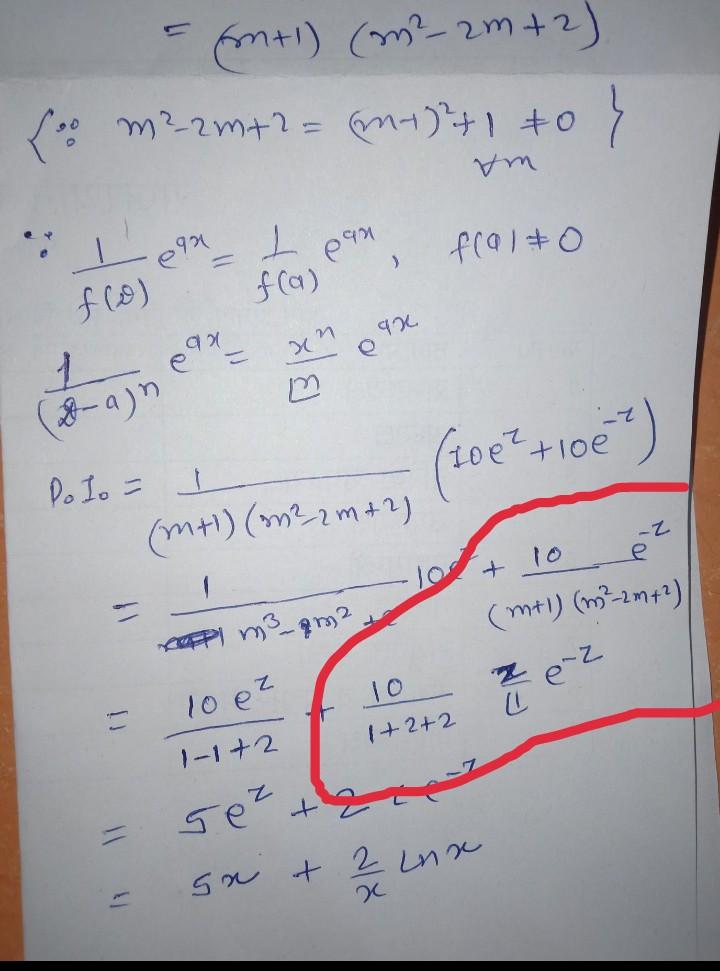 = (m+1) (m²-2m+2)
{∵ m²-2m+2 = (m-1)²+1 ≠0 }
∀m
∵ 1/f(D) e^{ax} = 1/f(a) e^{ax}, f(a) ≠ 0
1/(D-a)^n e^{ax} = x^n/⌊n e^{ax}
P.I. = 1/((m+1)(m²-2m+2)) (10e^z+10e^{-z})
= 1/(m³-m²+2) 10e^z + 10/((m+1)(m²-2m+2)) e^{-z}
= 10e^z/(1-1+2) + 10/(1+2+2) z/⌊1 e^{-z}
= 5e^z + 2 z e^{-z}
= 5x + 2/x ln x